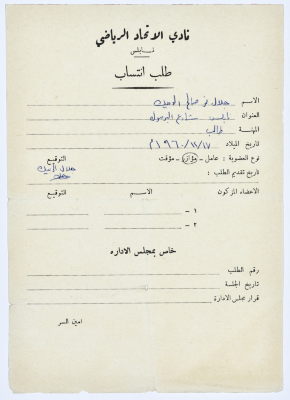 نادي الاتحاد الرياضي
نابلس
طلب انتساب
الاسم جلال
العنوان نابلس شارع
المهنة طالب
تاريخ الميلاد ١٩٦٠/١١/١٧ م
نوع العضوية : عامل - مؤازر - مؤقت التوقيع
تاريخ تقديم الطلب : جلال
الاعضاء المزكون الاسم التوقيع
١ -
٢ -
خاص بمجلس الاداره
رقم الطلب
تاريخ الجلسة
قرار مجلس الادارة
امين السر